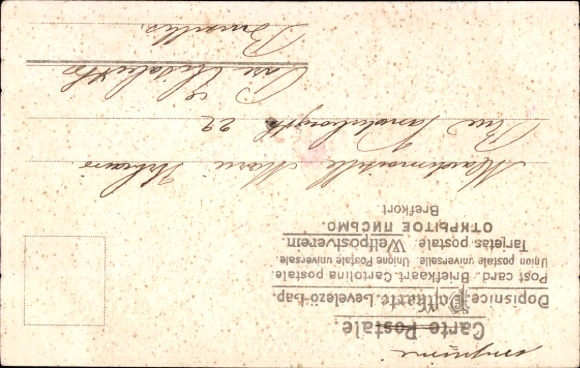 imprimé
Carte Postale.
Dopisnice. Postkarte. Levelező-Lap.
Post card. Briefkaart. Cartolina postale.
Union postale universelle. Unione Postale universale.
Tarjetas postale. Weltpostverein.
ОТКРЫТОЕ ПИСЬМО.
Brefkort.
Mademoiselle Marie
Rue 22
Bruxelles.